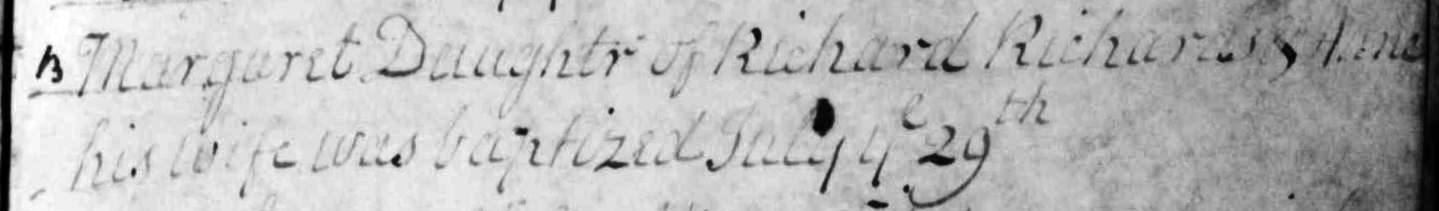 B Margaret Daughtr of Richard Richards & Anne
his wife was baptized July ye 29th